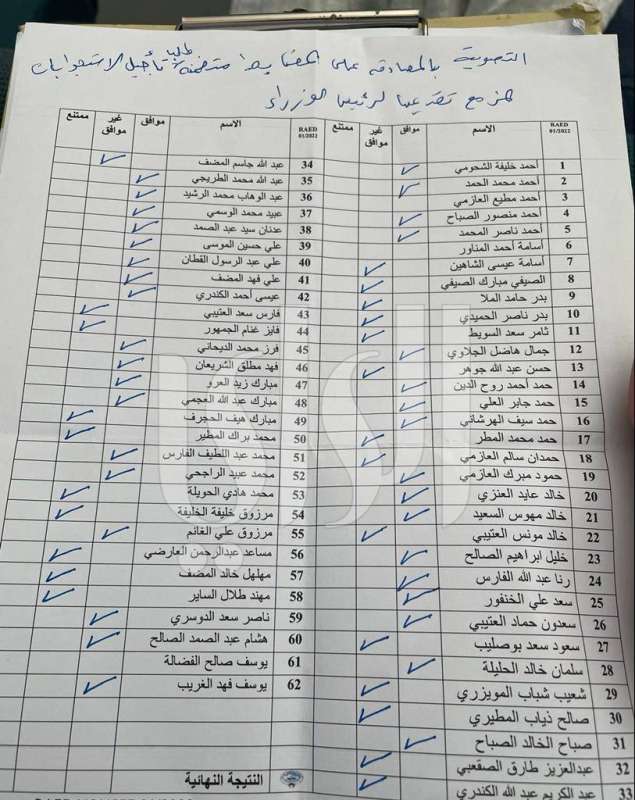 التصويت بالمصادقه على المضابط متضمنة طلبا تأجيل الاستجوابات
المزمع تقديمها لرئيس الوزراء
RAED 01/2022 الاسم موافق غير موافق ممتنع
1 أحمد خليفة الشحومي
2 أحمد محمد الحمد
3 أحمد مطيع العازمي
4 أحمد منصور الصباح
5 أحمد ناصر المحمد
6 أسامة أحمد المناور
7 أسامة عيسى الشاهين
8 الصيفي مبارك الصيفي
9 بدر حامد الملا
10 بدر ناصر الحميدي
11 ثامر سعد السويط
12 جمال هاضل الجلاوي
13 حسن عبد الله جوهر
14 حمد أحمد روح الدين
15 حمد جابر العلي
16 حمد سيف الهرشاني
17 حمد محمد المطر
18 حمدان سالم العازمي
19 حمود مبرك العازمي
20 خالد عايد العنزي
21 خالد مهوس السعيد
22 خالد مونس العتيبي
23 خليل ابراهيم الصالح
24 رنا عبد الله الفارس
25 سعد علي الخنفور
26 سعدون حماد العتيبي
27 سعود سعد بوصليب
28 سلمان خالد الحليلة
29 شعيب شباب المويزري
30 صالح ذياب المطيري
31 صباح الخالد الصباح
32 عبدالعزيز طارق الصقعبي
33 عبد الكريم عبد الله الكندري
RAED 01/2022 الاسم موافق غير موافق ممتنع
34 عبد الله جاسم المضف
35 عبد الله محمد الطريجي
36 عبد الوهاب محمد الرشيد
37 عبيد محمد الوسمي
38 عدنان سيد عبد الصمد
39 علي حسين الموسى
40 علي عبد الرسول القطان
41 علي فهد المضف
42 عيسى أحمد الكندري
43 فارس سعد العتيبي
44 فايز غنام الجمهور
45 فرز محمد الديحاني
46 فهد مطلق الشريعان
47 مبارك زيد العرو
48 مبارك عبد الله العجمي
49 مبارك هيف الحجرف
50 محمد براك المطير
51 محمد عبد اللطيف الفارس
52 محمد عبيد الراجحي
53 محمد هادي الحويلة
54 مرزوق خليفة الخليفة
55 مرزوق علي الغانم
56 مساعد عبدالرحمن العارضي
57 مهلهل خالد المضف
58 مهند طلال الساير
59 ناصر سعد الدوسري
60 هشام عبد الصمد الصالح
61 يوسف صالح الفضالة
62 يوسف فهد الغريب
النتيجة النهائية